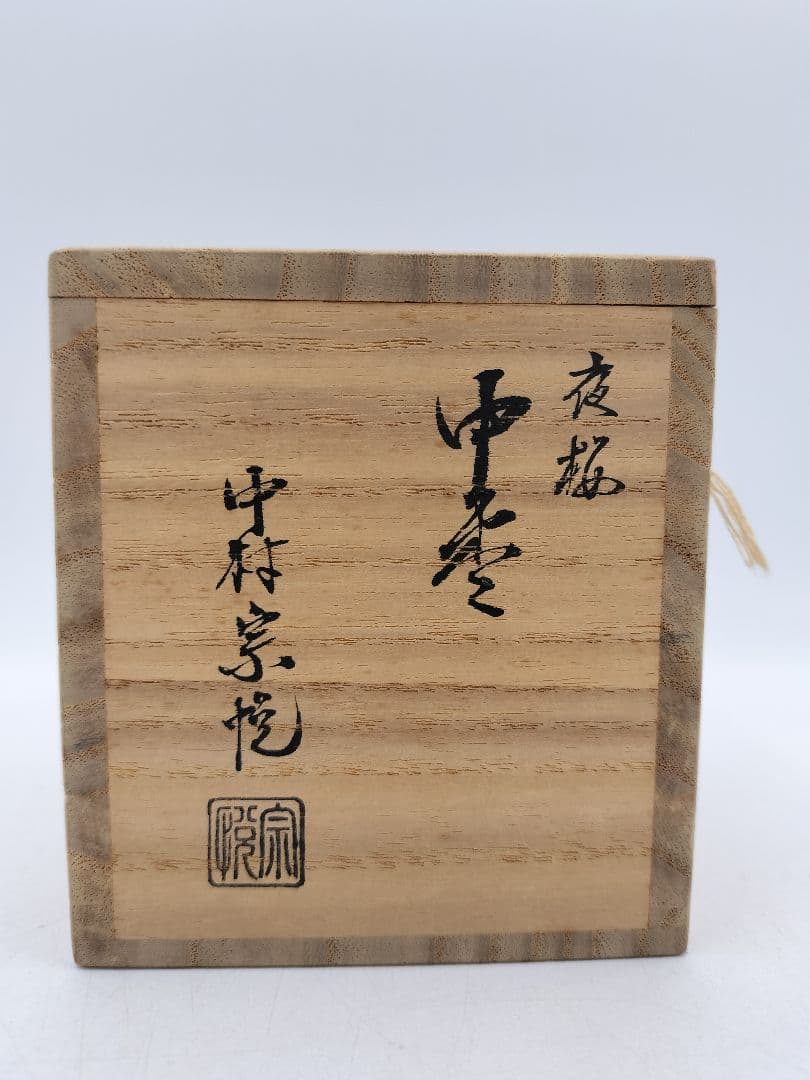 夜桜
中棗
中村宗悦
宗悦